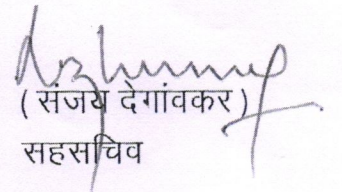 ( संजय देगांवकर )
सहसचिव